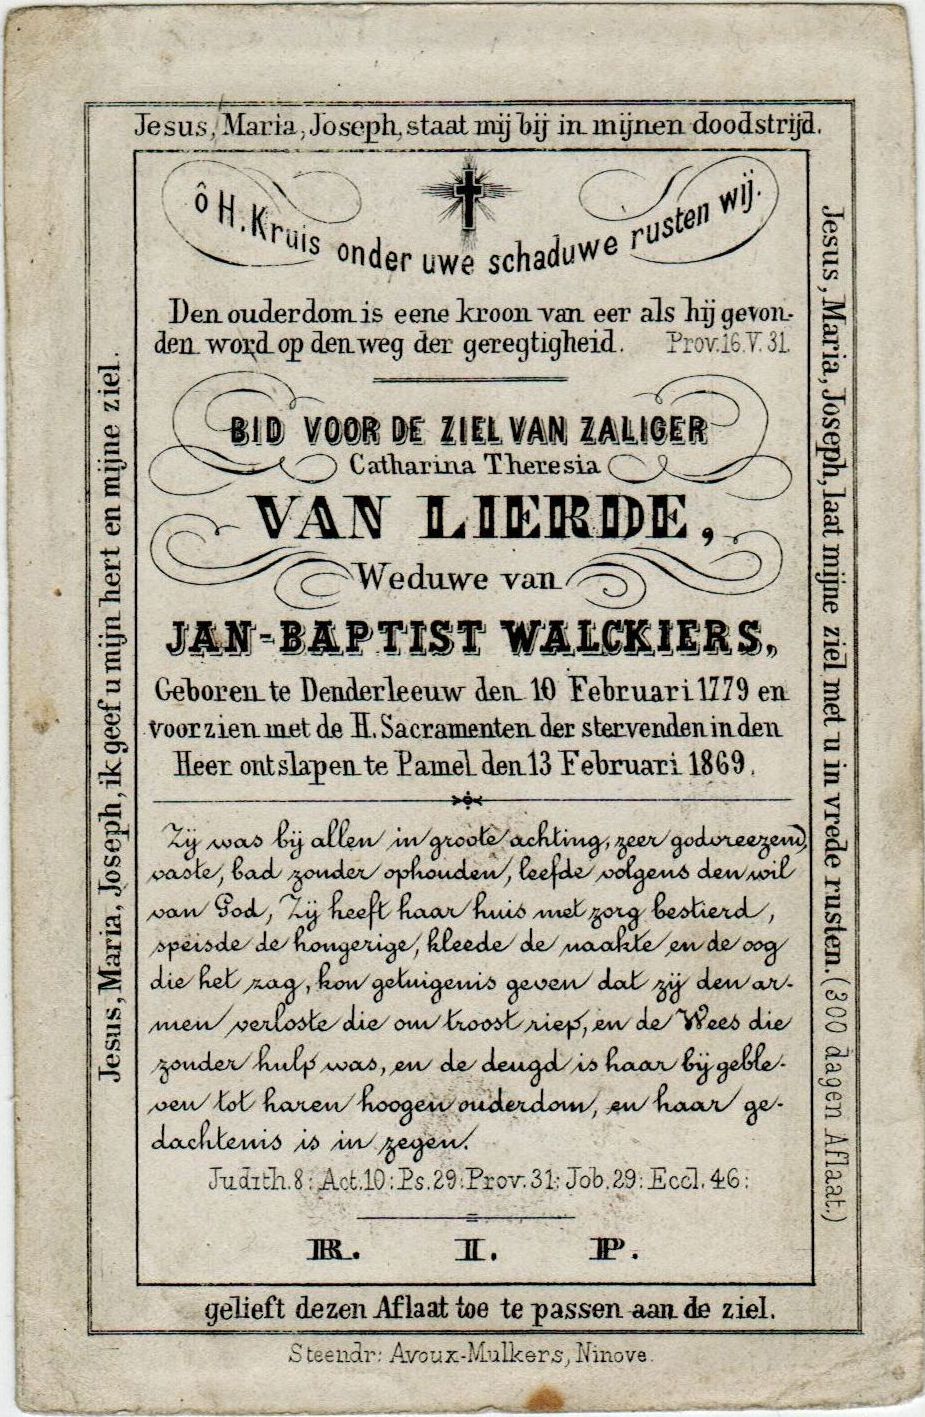 Jesus, Maria, Joseph, staat mij bij in mijnen doodstrijd.
Jesus, Maria, Joseph, ik geef u mijn hert en mijne ziel.
ô H. Kruis onder uwe schaduwe rusten wij.
Den ouderdom is eene kroon van eer als hij gevon-
den word op den weg der geregtigheid. Prov. 16. V. 31.
BID VOOR DE ZIEL VAN ZALIGER
Catharina Theresia
VAN LIERDE,
Weduwe van
JAN-BAPTIST WALCKIERS,
Geboren te Denderleeuw den 10 Februari 1779 en
voorzien met de H. Sacramenten der stervenden in den
Heer ontslapen te Pamel den 13 Februari 1869.
Zij was bij allen in groote achting, zeer godvreezend,
vaste, bad zonder ophouden, leefde volgens den wil
van God, Zij heeft haar huis met zorg bestierd,
speisde de hongerige, kleede de naakte en de oog
die het zag, kon getuigenis geven dat zij den ar-
men verloste die om troost riep, en de Wees die
zonder hulp was, en de deugd is haar bij geble-
ven tot haren hoogen ouderdom, en haar ge-
dachtenis is in zegen.
Judith. 8: Act. 10: Ps. 29: Prov. 31: Job. 29: Eccl. 46:
R. I. P.
Jesus, Maria, Joseph, laat mijne ziel met u in vrede rusten. (300 dagen Aflaat.)
gelieft dezen Aflaat toe te passen aan de ziel.
Steendr: Avoux-Mulkers, Ninove.